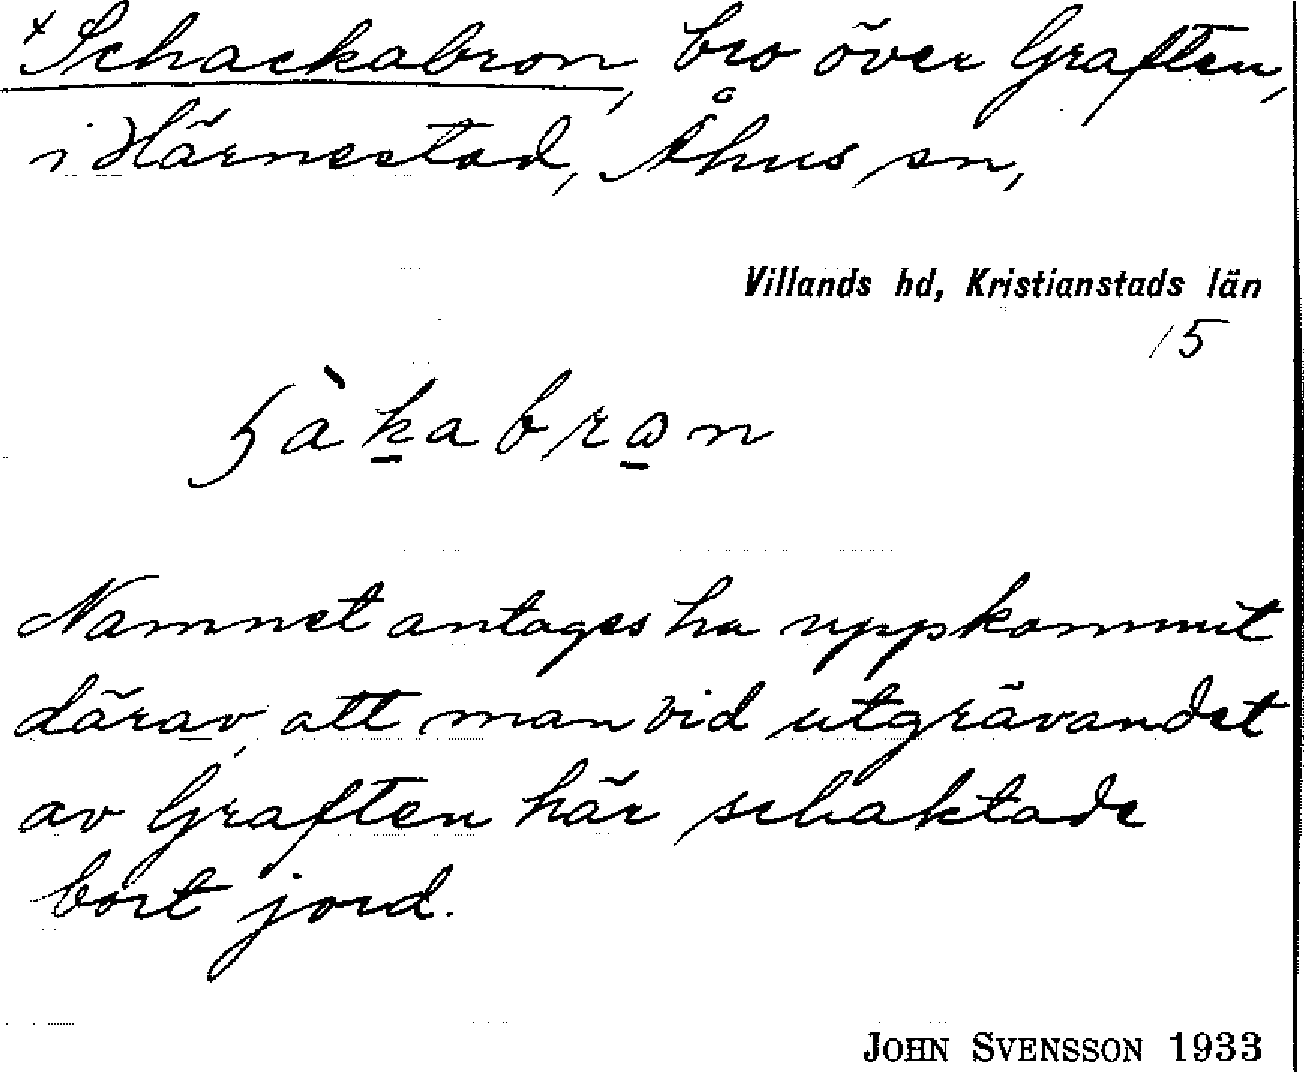 x Schackabron, bro över Graften,
i Härnestad, Åhus sn,
Villands hd, Kristianstads län
15
Namnet antages ha uppkommit
därav, att man vid utgrävandet
av Graften här schaktade
bort jord.
JOHN SVENSSON 1933